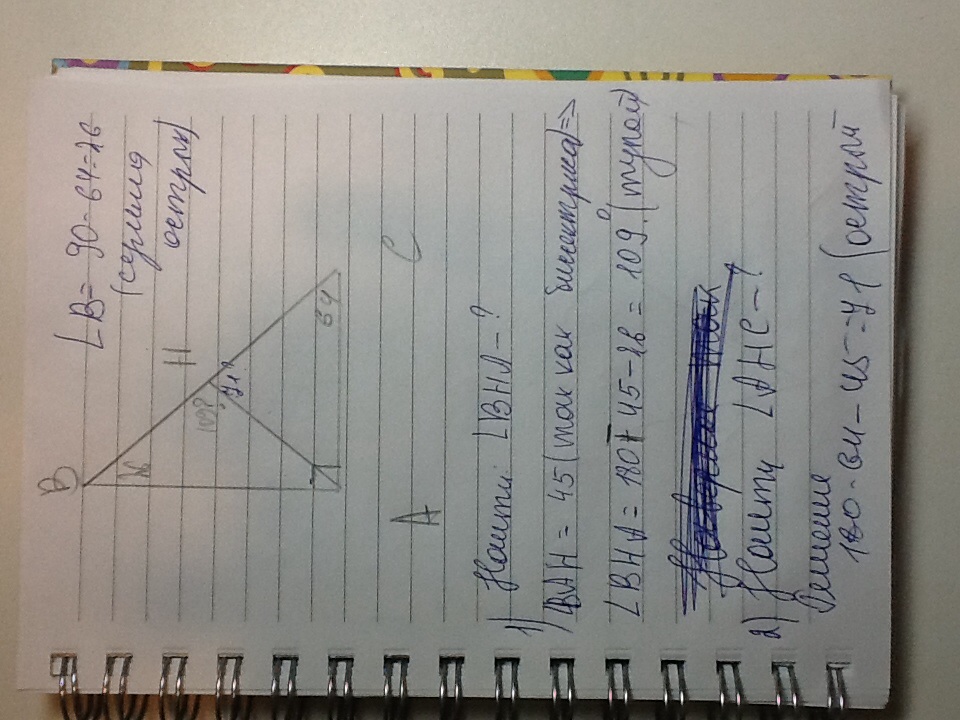 ∠B = 90 - 64 = 26
острый)
B
26
109°
H
71°
64
A
C
1) Найти: ∠BHA - ?
∠BAH = 45 (так как биссектриса) =>
∠BHA = 180 - 45 - 26 = 109° (тупой)
2) Найти ∠AHC - ?
Решение
180 - 64 - 45 = 71 (острый